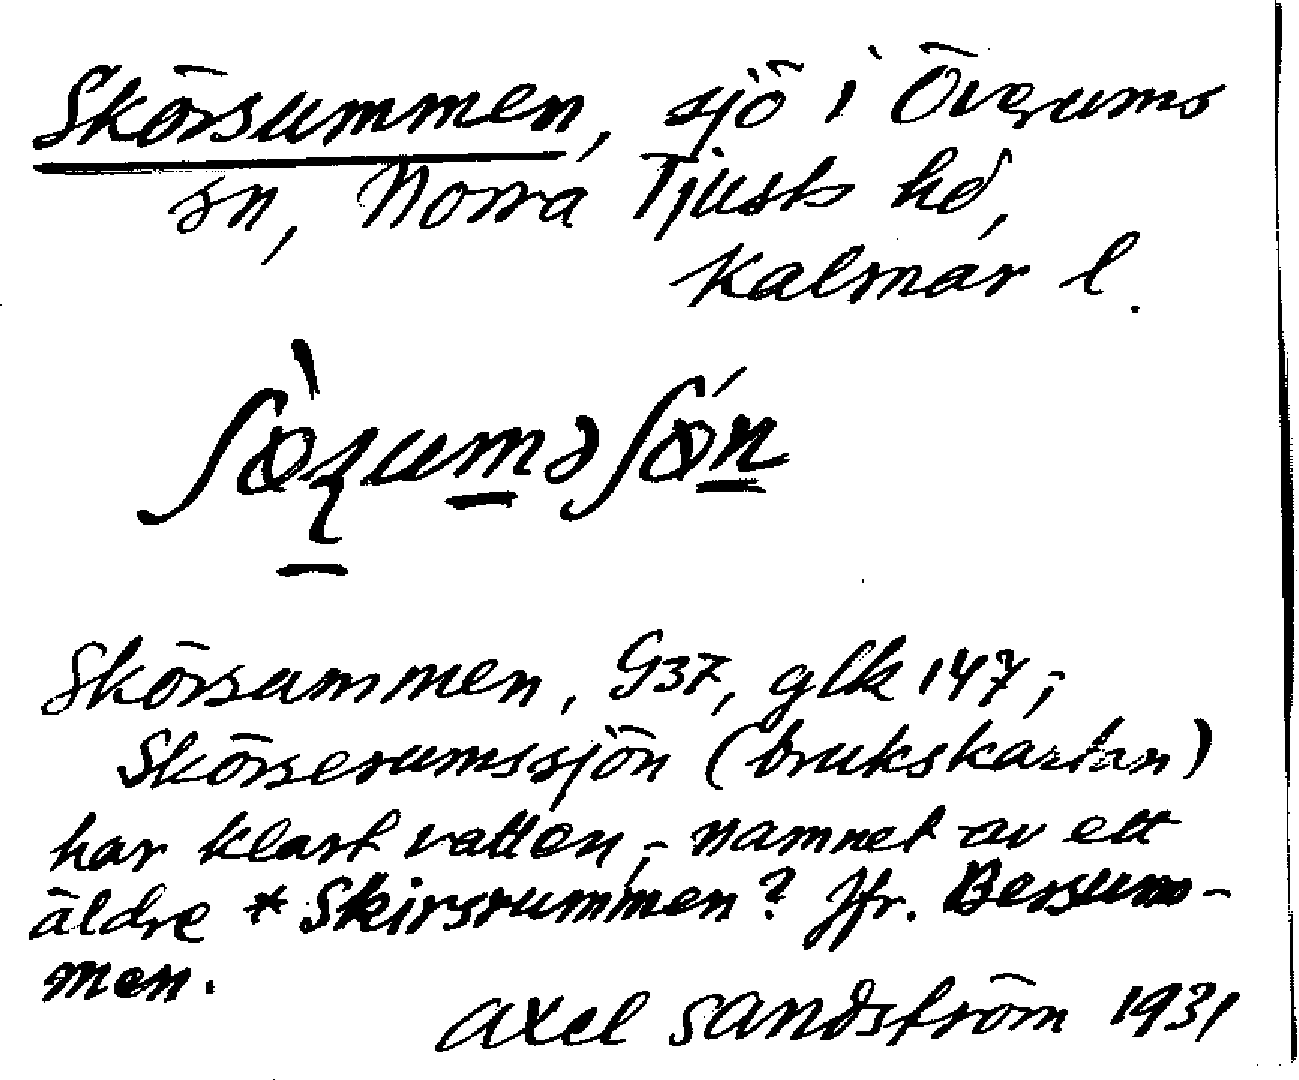 Skörsummen, sjö i Överums
sn, Norra Tjusts hd,
Kalmar l.
Skörsummen, G37, glk 147;
Skörserumssjön (brukskartan)
har klart vatten; namnet av ett
äldre *Skirsrummen? Jfr. Bersum-
men.
Axel Sandström 1931